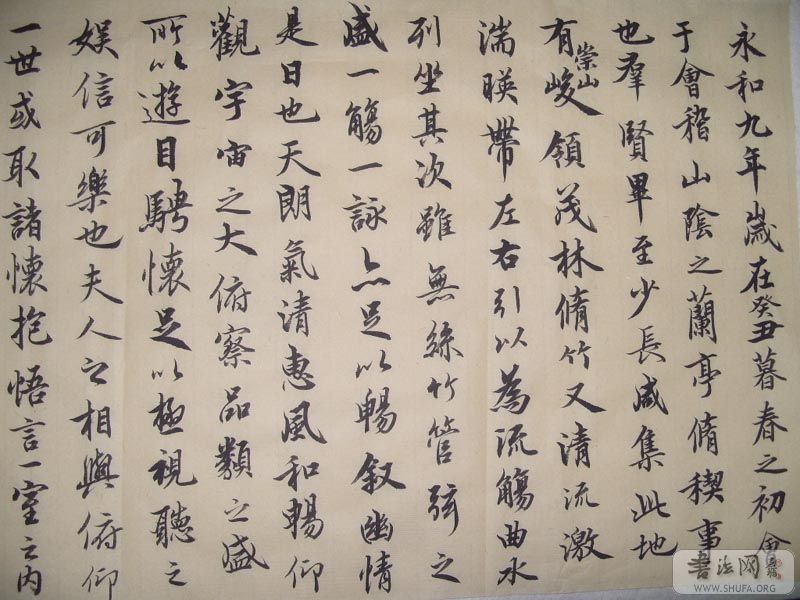 永和九年歲在癸丑暮春之初會
于會稽山陰之蘭亭脩稧事
也羣賢畢至少長咸集此地
有崇山峻領茂林脩竹又清流激
湍暎帶左右引以為流觴曲水
列坐其次雖無絲竹管弦之
盛一觴一詠亦足以暢叙幽情
是日也天朗氣清惠風和暢仰
觀宇宙之大俯察品類之盛
所以遊目騁懷足以極視聽之
娛信可樂也夫人之相與俯仰
一世或取諸懷抱悟言一室之內
书法网
WWW.SHUFA.ORG